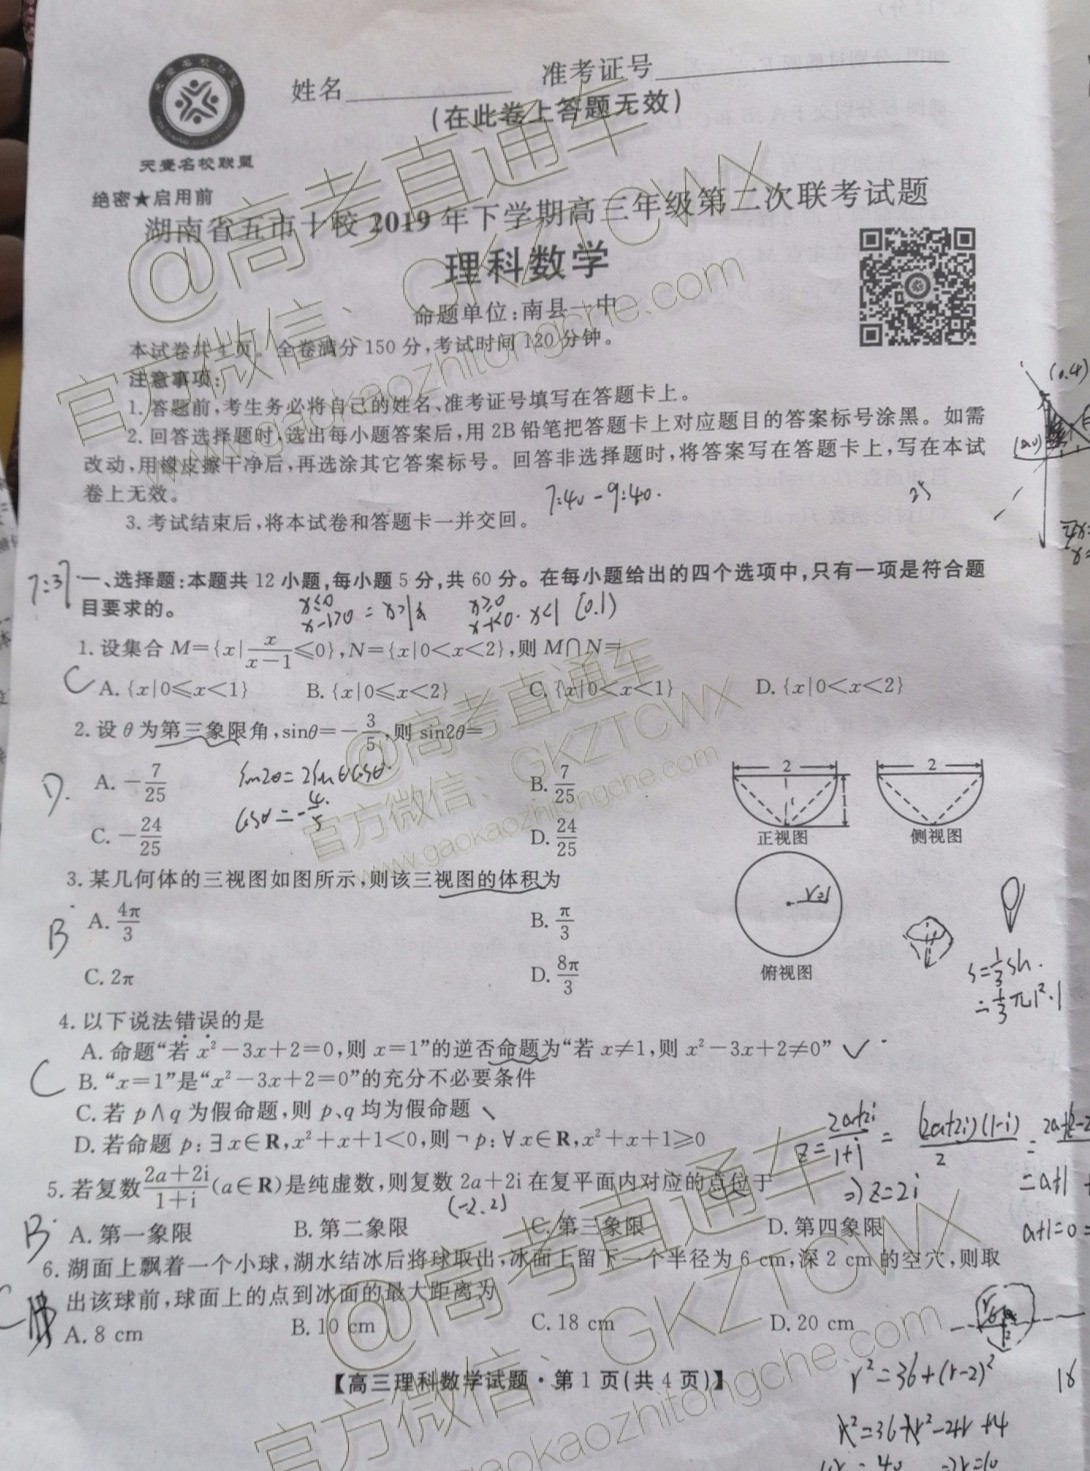 天壹名校联盟
姓名 准考证号
(在此卷上答题无效)
绝密★启用前
湖南省五市十校2019年下学期高三年级第二次联考试题
理科数学
命题单位:南县一中
本试卷共4页。全卷满分150分,考试时间120分钟。
注意事项:
1.答题前,考生务必将自己的姓名、准考证号填写在答题卡上。
2.回答选择题时,选出每小题答案后,用2B铅笔把答题卡上对应题目的答案标号涂黑。如需
改动,用橡皮擦干净后,再选涂其它答案标号。回答非选择题时,将答案写在答题卡上,写在本试
卷上无效。
7:40-9:40.
25
3.考试结束后,将本试卷和答题卡一并交回。
7:37
一、选择题:本题共12小题,每小题5分,共60分。在每小题给出的四个选项中,只有一项是符合题
目要求的。
1.设集合M={x|x/(x-1)≤0},N={x|0<x<2},则M∩N=
C
A.{x|0≤x<1} B.{x|0≤x<2} C.{x|0<x<1} D.{x|0<x<2}
2.设θ为第三象限角,sinθ=-3/5,则sin2θ=
D.
A.-7/25 B.7/25
sin2θ=2sinθcosθ.
cosθ=-4/5
C.-24/25 D.24/25
2 2
1
正视图 侧视图
3.某几何体的三视图如图所示,则该三视图的体积为
B
A.4π/3 B.π/3
C.2π D.8π/3
r=1
俯视图
s=1/3sh.
=1/3π1²·1
4.以下说法错误的是
A.命题“若x²-3x+2=0,则x=1”的逆否命题为“若x≠1,则x²-3x+2≠0”
C
B.“x=1”是“x²-3x+2=0”的充分不必要条件
C.若p∧q为假命题,则p、q均为假命题
D.若命题p:∃x∈R,x²+x+1<0,则¬p:∀x∈R,x²+x+1≥0
z=(2a+2i)/(1+i)=(2a+2i)(1-i)/2
⇒z=2i
5.若复数(2a+2i)/(1+i)(a∈R)是纯虚数,则复数2a+2i在复平面内对应的点位于
(-2,2)
B
A.第一象限 B.第二象限 C.第三象限 D.第四象限
a+1=0
6.湖面上飘着一个小球,湖水结冰后将球取出,冰面上留下一个半径为6 cm,深2 cm的空穴,则取
出该球前,球面上的点到冰面的最大距离为
A.8 cm B.10 cm C.18 cm D.20 cm
【高三理科数学试题·第1页(共4页)】
r²=36+(r-2)²
r²=36+r²-4r+4
@高考直通车
官方微信:GKZTCWX
www.gaokaozhitongche.com
@高考直通车
官方微信:GKZTCWX
www.gaokaozhitongche.com
@高考直通车
官方微信:GKZTCWX
gaokaozhitongche.com